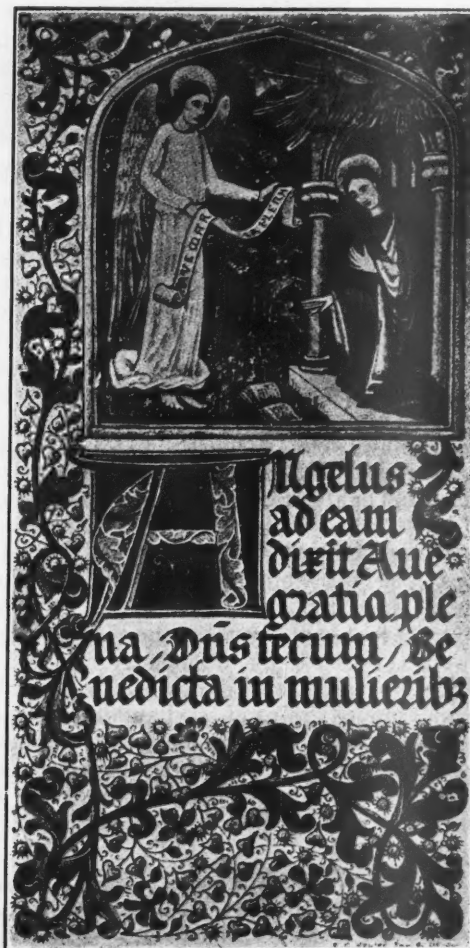 AVE MAR
ANgelus
ad eam
dixit Aue
gratia ple
na, Dñs tecum, Be
nedicta in mulieribꝫ